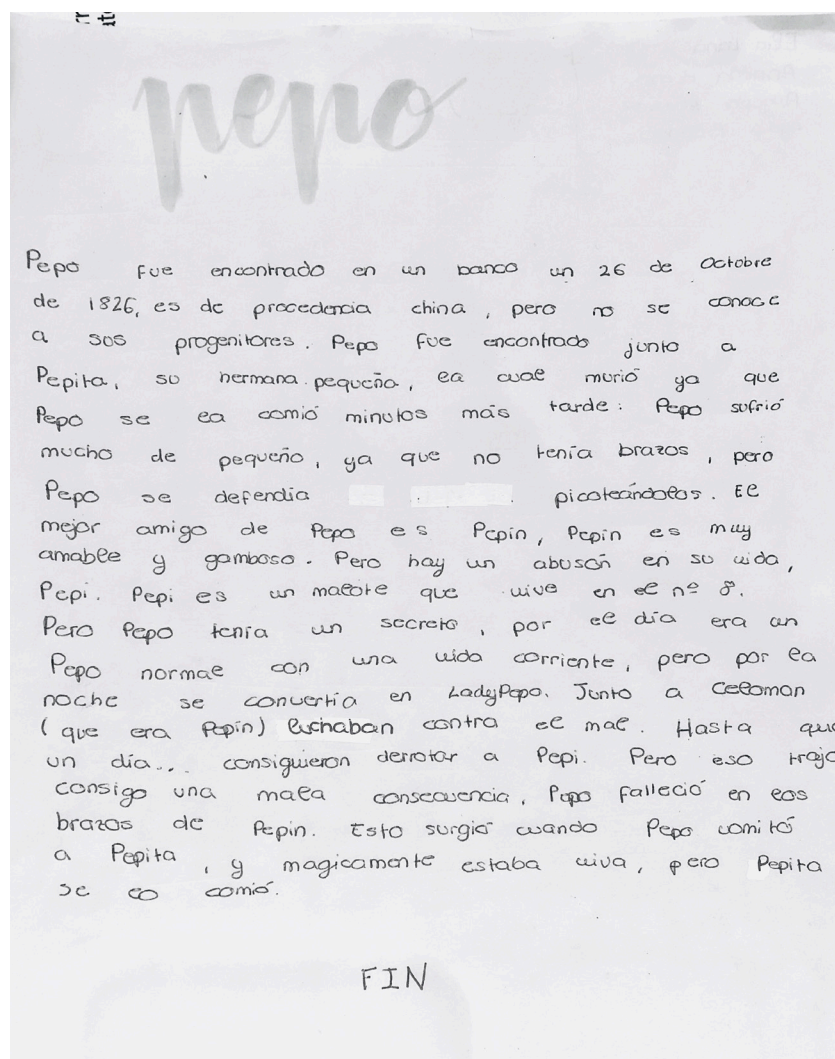 pepo
Pepo fue encontrado en un banco un 26 de Octubre
de 1826, es de procedencia china, pero no se conoce
a sus progenitores. Pepo fue encontrado junto a
Pepita, su hermana pequeña, la cual murió ya que
Pepo se la comió minutos más tarde. Pepo sufrió
mucho de pequeño, ya que no tenía brazos, pero
Pepo se defendia picoteándolos. El
mejor amigo de Pepo es Pepin, Pepin es muy
amable y gamboso. Pero hay un abusón en su vida,
Pepi. Pepi es un malote que vive en el nº 8.
Pero Pepo tenía un secreto, por el día era un
Pepo normal con una vida corriente, pero por la
noche se convertía en LadyPepo. Junto a Celoman
(que era Pepín) luchaban contra el mal. Hasta que
un día... consiguieron derrotar a Pepi. Pero eso trajo
consigo una mala consecuencia, Pepo falleció en los
brazos de Pepin. Esto surgió cuando Pepo vomitó
a Pepita, y magicamente estaba viva, pero Pepita
se lo comió.
FIN